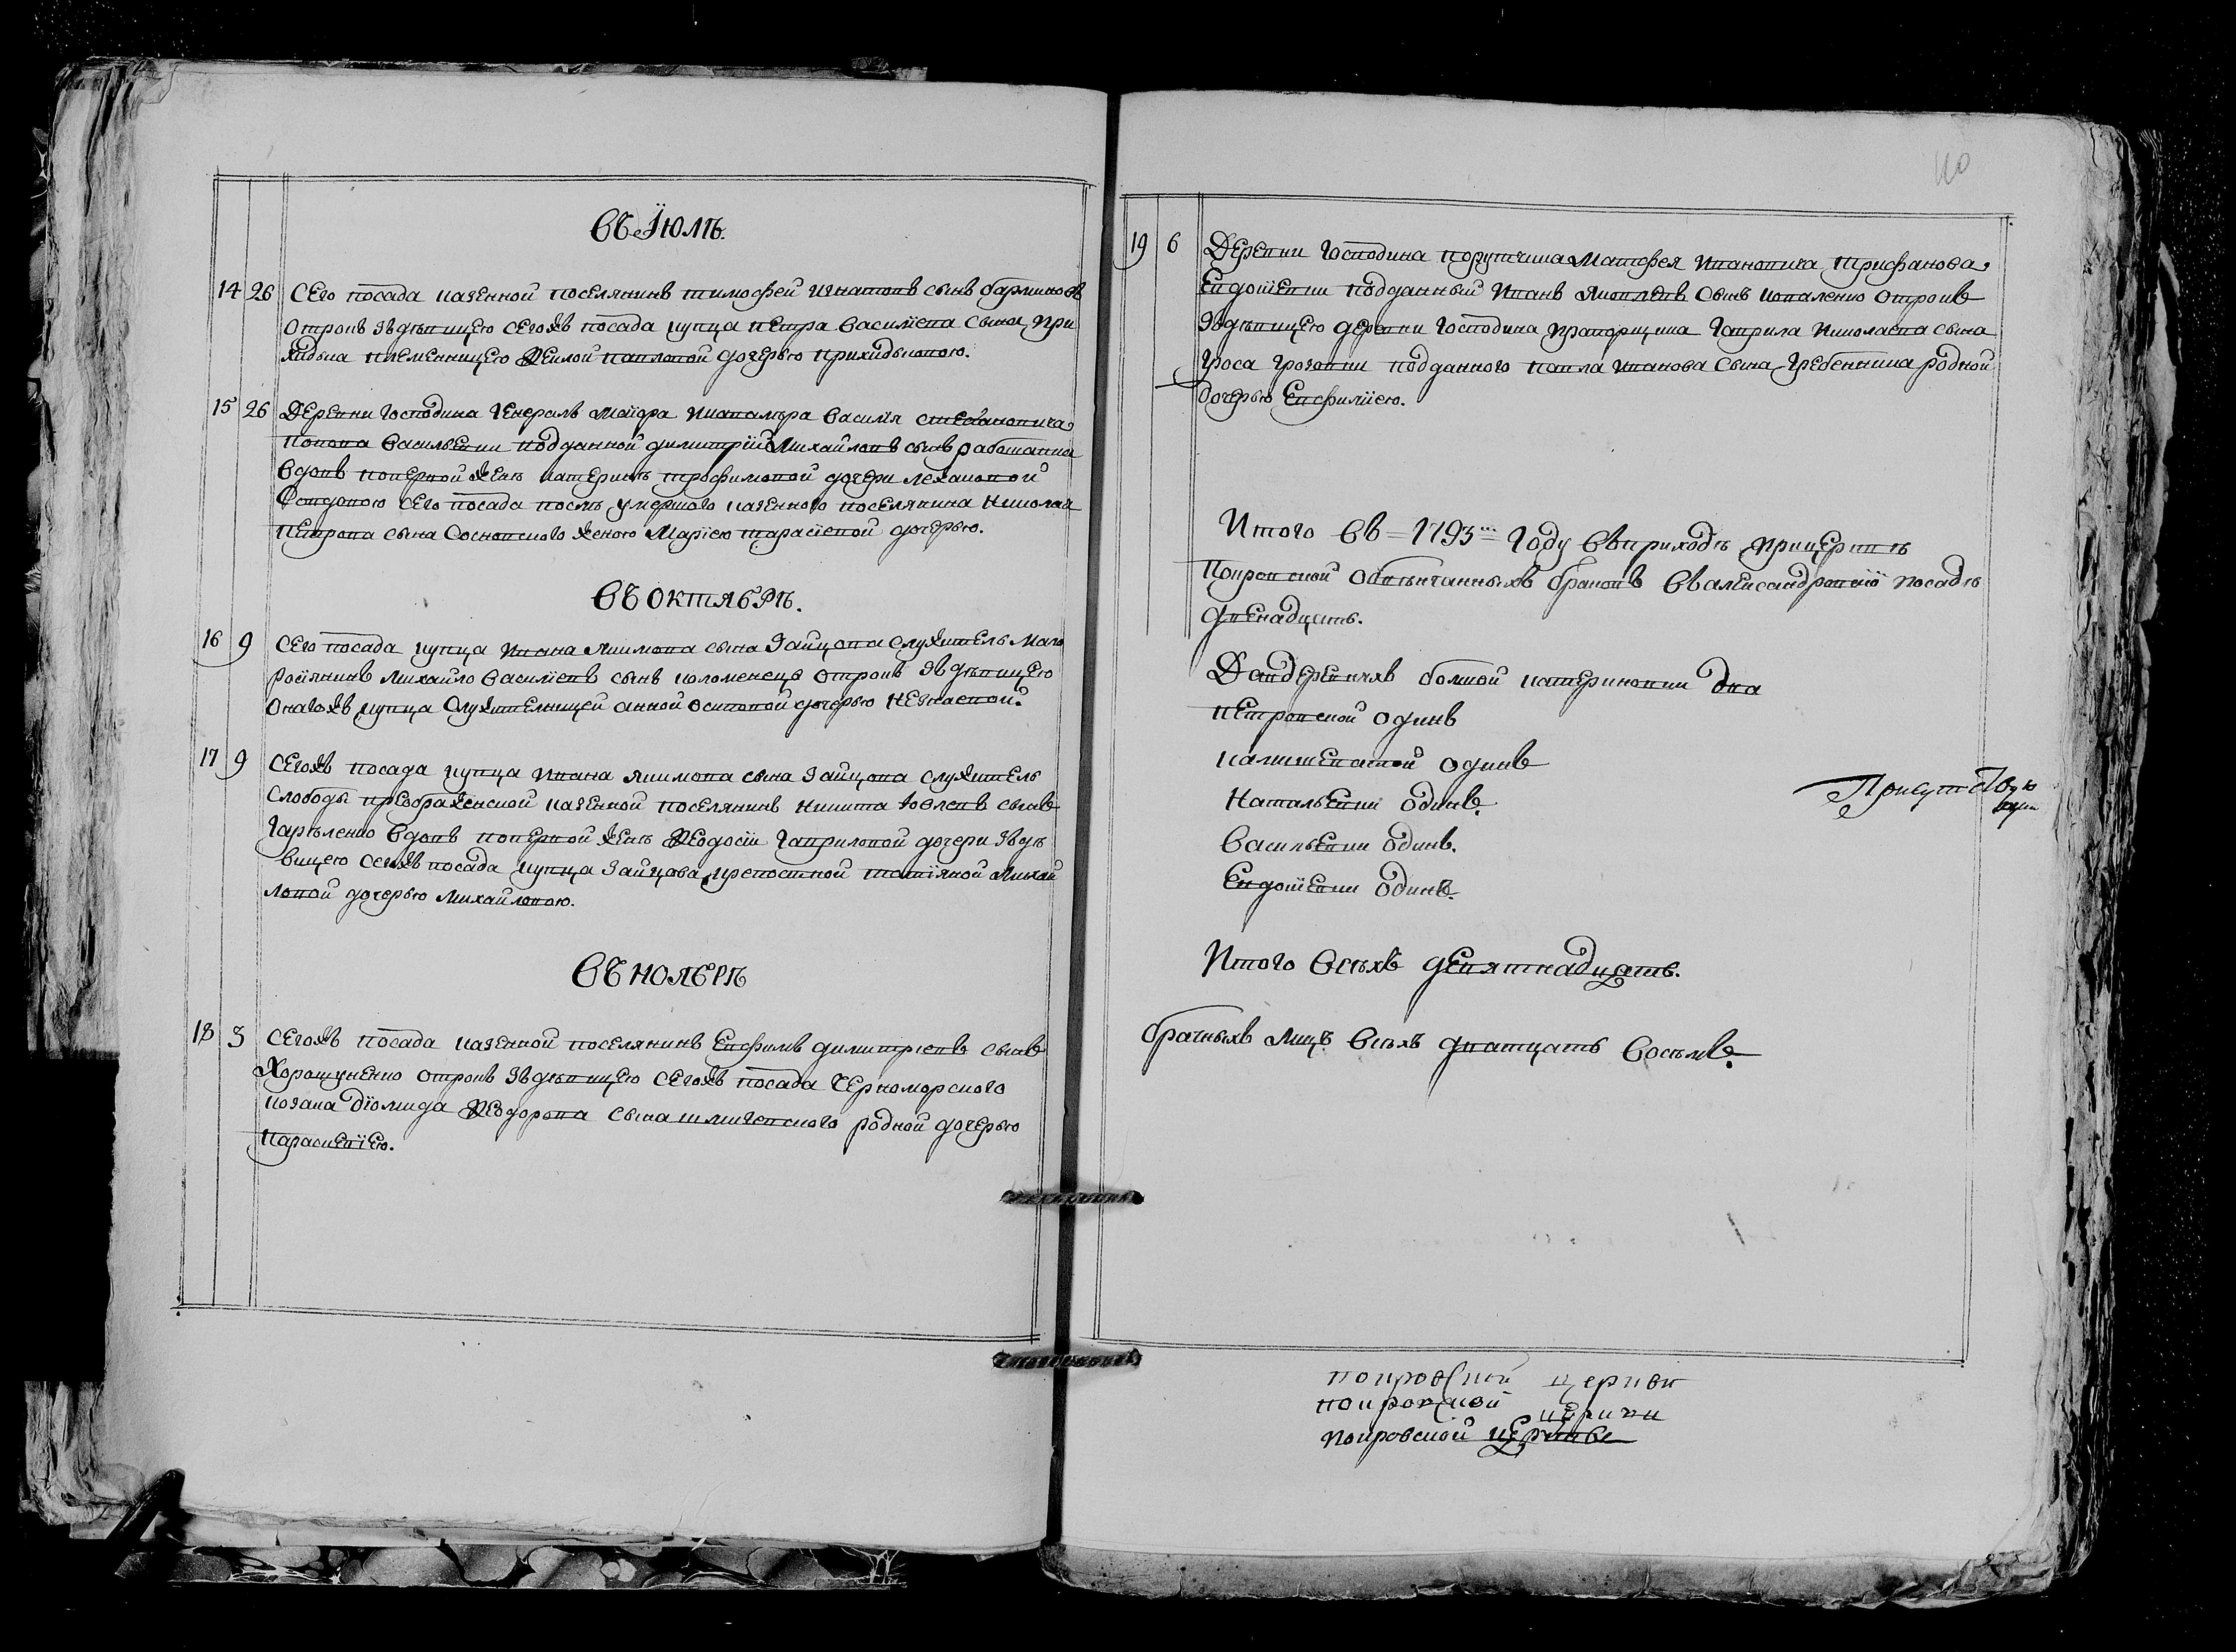 Въ Іюлѣ.
14 26 Сего посада казенной поселянинъ тимофей игнатовъ сынъ
отрокъ здѣвицею сегожъ посада купца петра василіева сына при
хидька племенницею Ѳеклой павловой дочерью прихидьковою.
15 26 Деревни господина генералъ маіора кавалѣра василія степановича
попова васильевки подданной димитрій михайловъ сынъ работавка
вдовъ поперной женѣ катеринѣ трофимовой дочери лехановой
совдовою сего посада послѣ умершого казенного поселянина николая
петрова сына сосновского женою маріею тарасіевой дочерью.
Въ октябрѣ.
16 9 Сего посада купца ивана якимова сына зайцова служитель мало
росіянинъ михайло василіевъ сынъ коломенецъ отрокъ здѣвицею
оногожъ купца служителницей анной осиповой дочерью незнаевой.
17 9 Сегожъ посада купца ивана якимова сына зайцова служитель
слободы преображенской казенной поселянинъ никита іовлевъ сынъ
гарѣленко вдовъ поперной женѣ Ѳеодосіи гавриловой дочери здѣ
вицею сегожъ посада купца зайцова крепостной татіяной михай
ловой дочерью михайловою.
Въ ноябрѣ
18 3 Сегожъ посада казенной поселянинъ евфимъ димитріевъ сынъ
хорошуненко отрокъ здѣвицею сегожъ посада черноморского
козака діомида Ѳеодорова сына шмигевского родной дочерью
параскевіею.
19 6 Деревни господина порутчика матфея ивановича трифанова
евдокіевки подданный иванъ яковлевъ сынъ коваленко отрокъ
здѣвицею деревни господина прапорщика гаврила николаева сына
гроса грозовки подданного павла иванова сына гребенника родной
дочерью евфиміею.
Итого въ 1793 году въ приходѣ прицерквѣ
покровской обвѣнчанныхъ браковъ въ александровскѣ посадѣ
двенадцать.
Да в деревняхъ болшой катериновки два
петровской одинъ
камишеватой одинъ
натальевки одинъ.
васильевки одинъ.
евдокіевки одинъ.
Итого всѣхъ девятнадцать.
брачныхъ лицъ всѣхъ дватцать восѣмъ.
покровской церкви
покровской церкви
покровской церкве